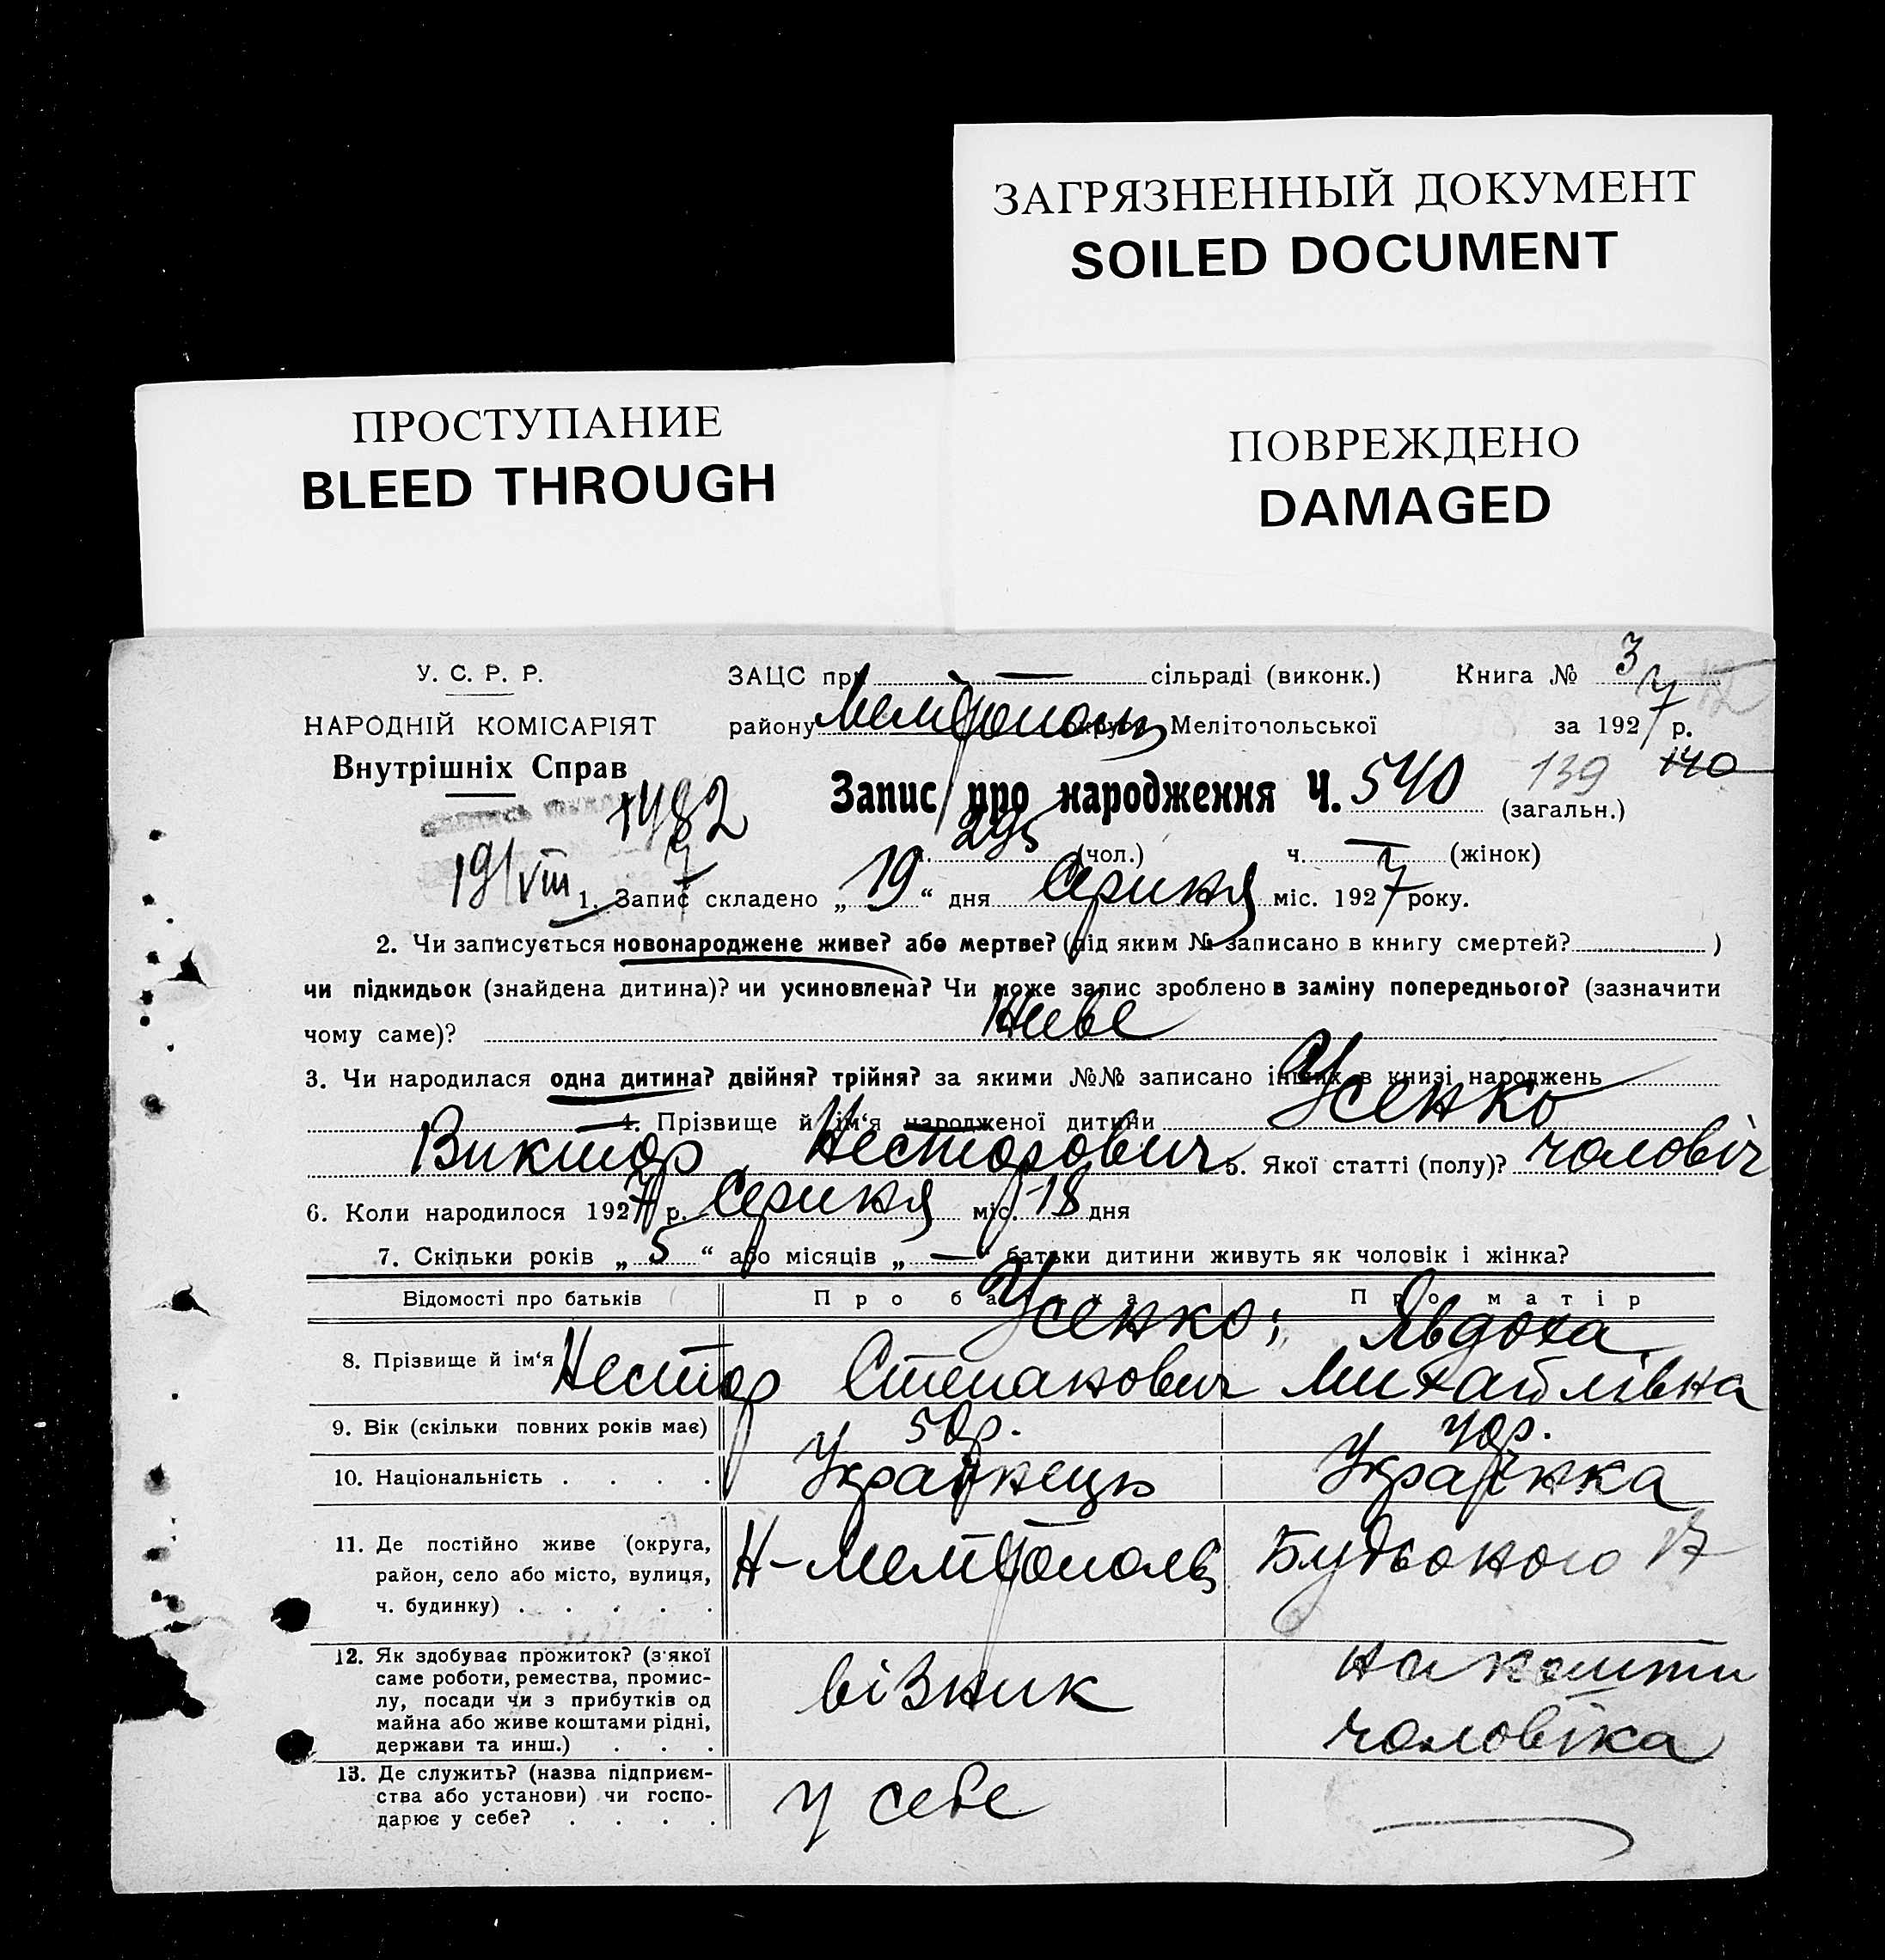 ЗАГРЯЗНЕННЫЙ ДОКУМЕНТ
SOILED DOCUMENT
ПРОСТУПАНИЕ
BLEED THROUGH
ПОВРЕЖДЕНО
DAMAGED
У. С. Р. Р.
НАРОДНІЙ КОМІСАРІЯТ
Внутрішніх Справ
ЗАЦС при — сільраді (виконк.) Книга № 3
району округи Мелітопольської за 1927 р.
139 140
Запис про народження Ч. 540 (загальн.)
1482
ч. 295 (чол.) ч. — (жінок)
19/VIII
1. Запис складено „ 19 “ дня Серпня міс. 1927 року.
2. Чи записується новонароджене живе? або мертве? (під яким № записано в книгу смертей? )
чи підкидьок (знайдена дитина)? чи усиновлена? Чи може запис зроблено в заміну попереднього? (зазначити
чому саме)? Живе
3. Чи народилася одна дитина? двійня? трійня? за якими №№ записано інших в книзі народжень
4. Прізвище й ім‘я народженої дитини Усенко
Виктор Несторович 5. Якої статті (полу)? чоловіч
6. Коли народилося 1927 р. Серпня міс. 18 дня
7. Скільки років „ 5 “ або місяців „ — “ батьки дитини живуть як чоловік і жінка?
Відомості про батьків Про батька Про матір
Усенко; Явдоха
8. Прізвище й ім‘я Нестор Степанович Михайлівна
9. Вік (скільки повних років має) 50р. 40р.
10. Національність . . . . Українець Українка
11. Де постійно живе (округа,
район, село або місто, вулиця,
ч. будинку) . . . . .
Н-Мелітополь 17
12. Як здобуває прожиток? (з'якої
саме роботи, ремества, промис-
лу, посади чи з прибутків од
майна або живе коштами рідні,
держави та инш.) . . .
візник
на кошти
чоловіка
13. Де служить? (назва підприєм-
ства або установи) чи госпо-
дарює у себе? . . . .
у себе